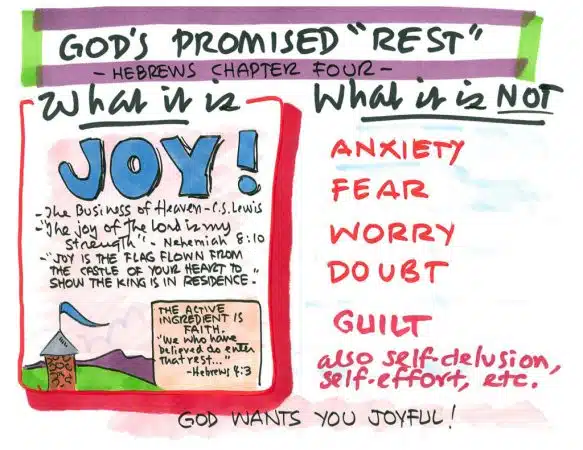 GOD'S PROMISED "REST"
- HEBREWS CHAPTER FOUR -
What it is
JOY!
- The Business of Heaven - C.S. Lewis
- "The joy of the Lord is my
strength" - Nehemiah 8:10
- "JOY IS THE FLAG FLOWN FROM
THE CASTLE OF YOUR HEART TO
SHOW THE KING IS IN RESIDENCE."
THE ACTIVE
INGREDIENT IS
FAITH.
"We who have
believed do enter
that rest..."
- Hebrews 4:3
What it is NOT
ANXIETY
FEAR
WORRY
DOUBT
GUILT
also self-delusion,
self-effort, etc.
GOD WANTS YOU JOYFUL!